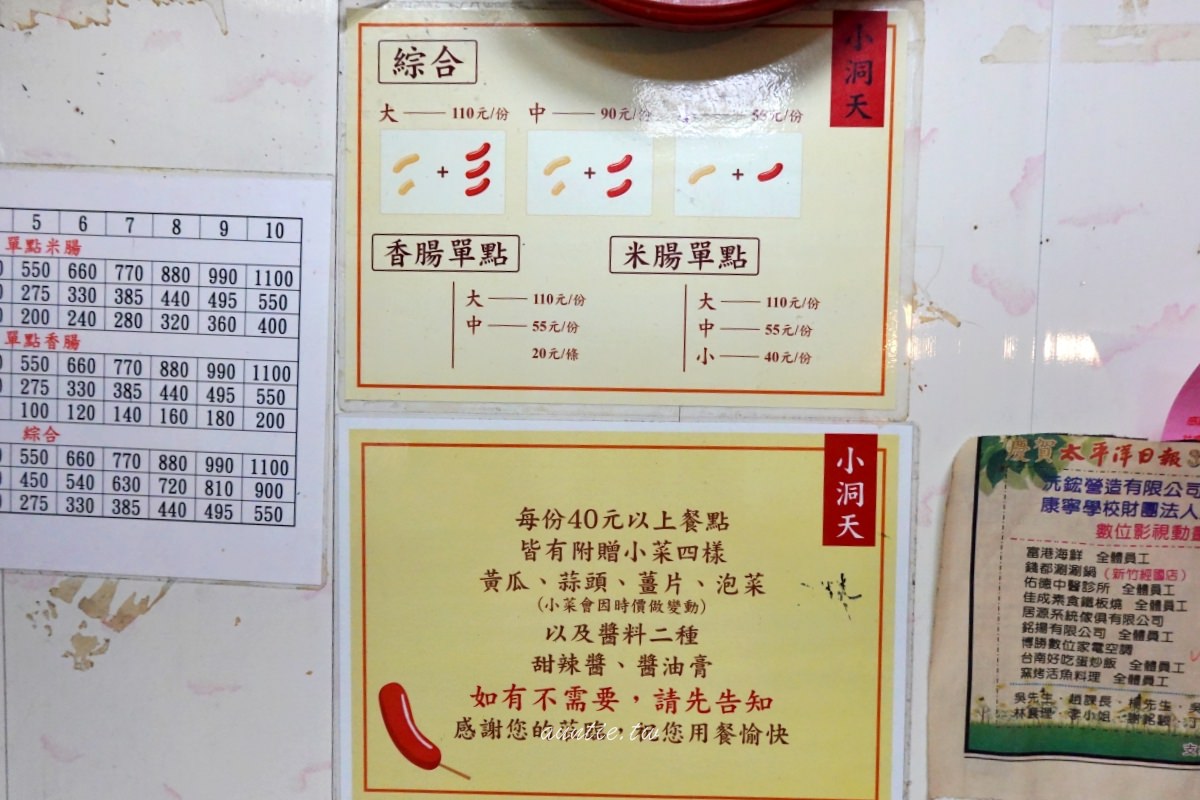 5 6 7 8 9 10
單點米腸
550 660 770 880 990 1100
275 330 385 440 495 550
200 240 280 320 360 400
單點香腸
550 660 770 880 990 1100
275 330 385 440 495 550
100 120 140 160 180 200
綜合
550 660 770 880 990 1100
450 540 630 720 810 900
275 330 385 440 495 550
小洞天
綜合
大 —— 110元/份 中 —— 90元/份 元/份
+ + +
香腸單點 米腸單點
大 —— 110元/份
中 —— 55元/份
20元/條
大 —— 110元/份
中 —— 55元/份
小 —— 40元/份
小洞天
每份40元以上餐點
皆有附贈小菜四樣
黃瓜、蒜頭、薑片、泡菜
(小菜會因時價做變動)
以及醬料二種
甜辣醬、醬油膏
如有不需要，請先告知
感謝您的蒞臨，祝您用餐愉快
auntie.tw
慶賀太平洋日報
沅鋐營造有限公司
康寧學校財團法人
數位影視動畫
富港海鮮 全體員工
錢都涮涮鍋(新竹經國店)
佑德中醫診所 全體員工
佳成素食鐵板燒 全體員工
居源系統傢俱有限公司
銘揚有限公司 全體員工
博勝數位家電空調
台南好吃蛋炒飯 全體員工
窯烤活魚料理 全體員工
吳先生．趙課長．楊先生．吳
李小姐